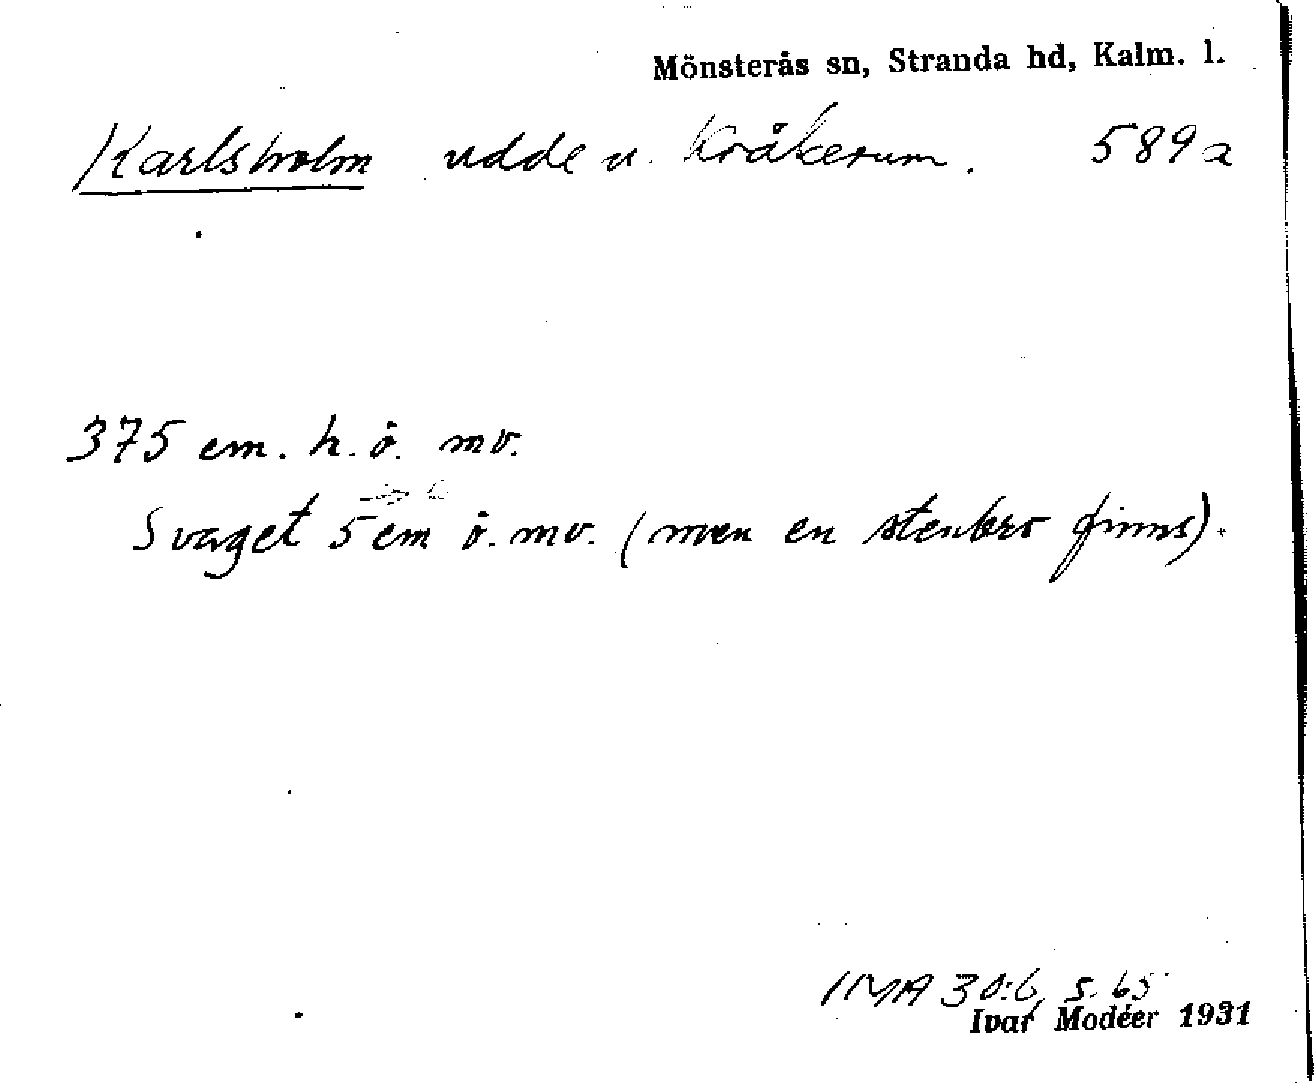 Mönsterås sn, Stranda hd, Kalm. l.
Karlsholm udde v. Kråkerum. 589a
375 cm. h. ö. mv.
Svaget 5 cm ö. mv. (men en stenbro finns).
IMA 30:6, s. 65
Ivar Modéer 1931